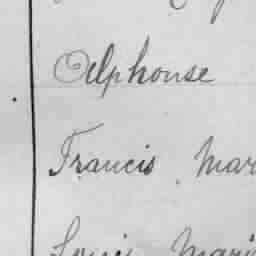 Alphonse
Francis Mar
Louis Mari